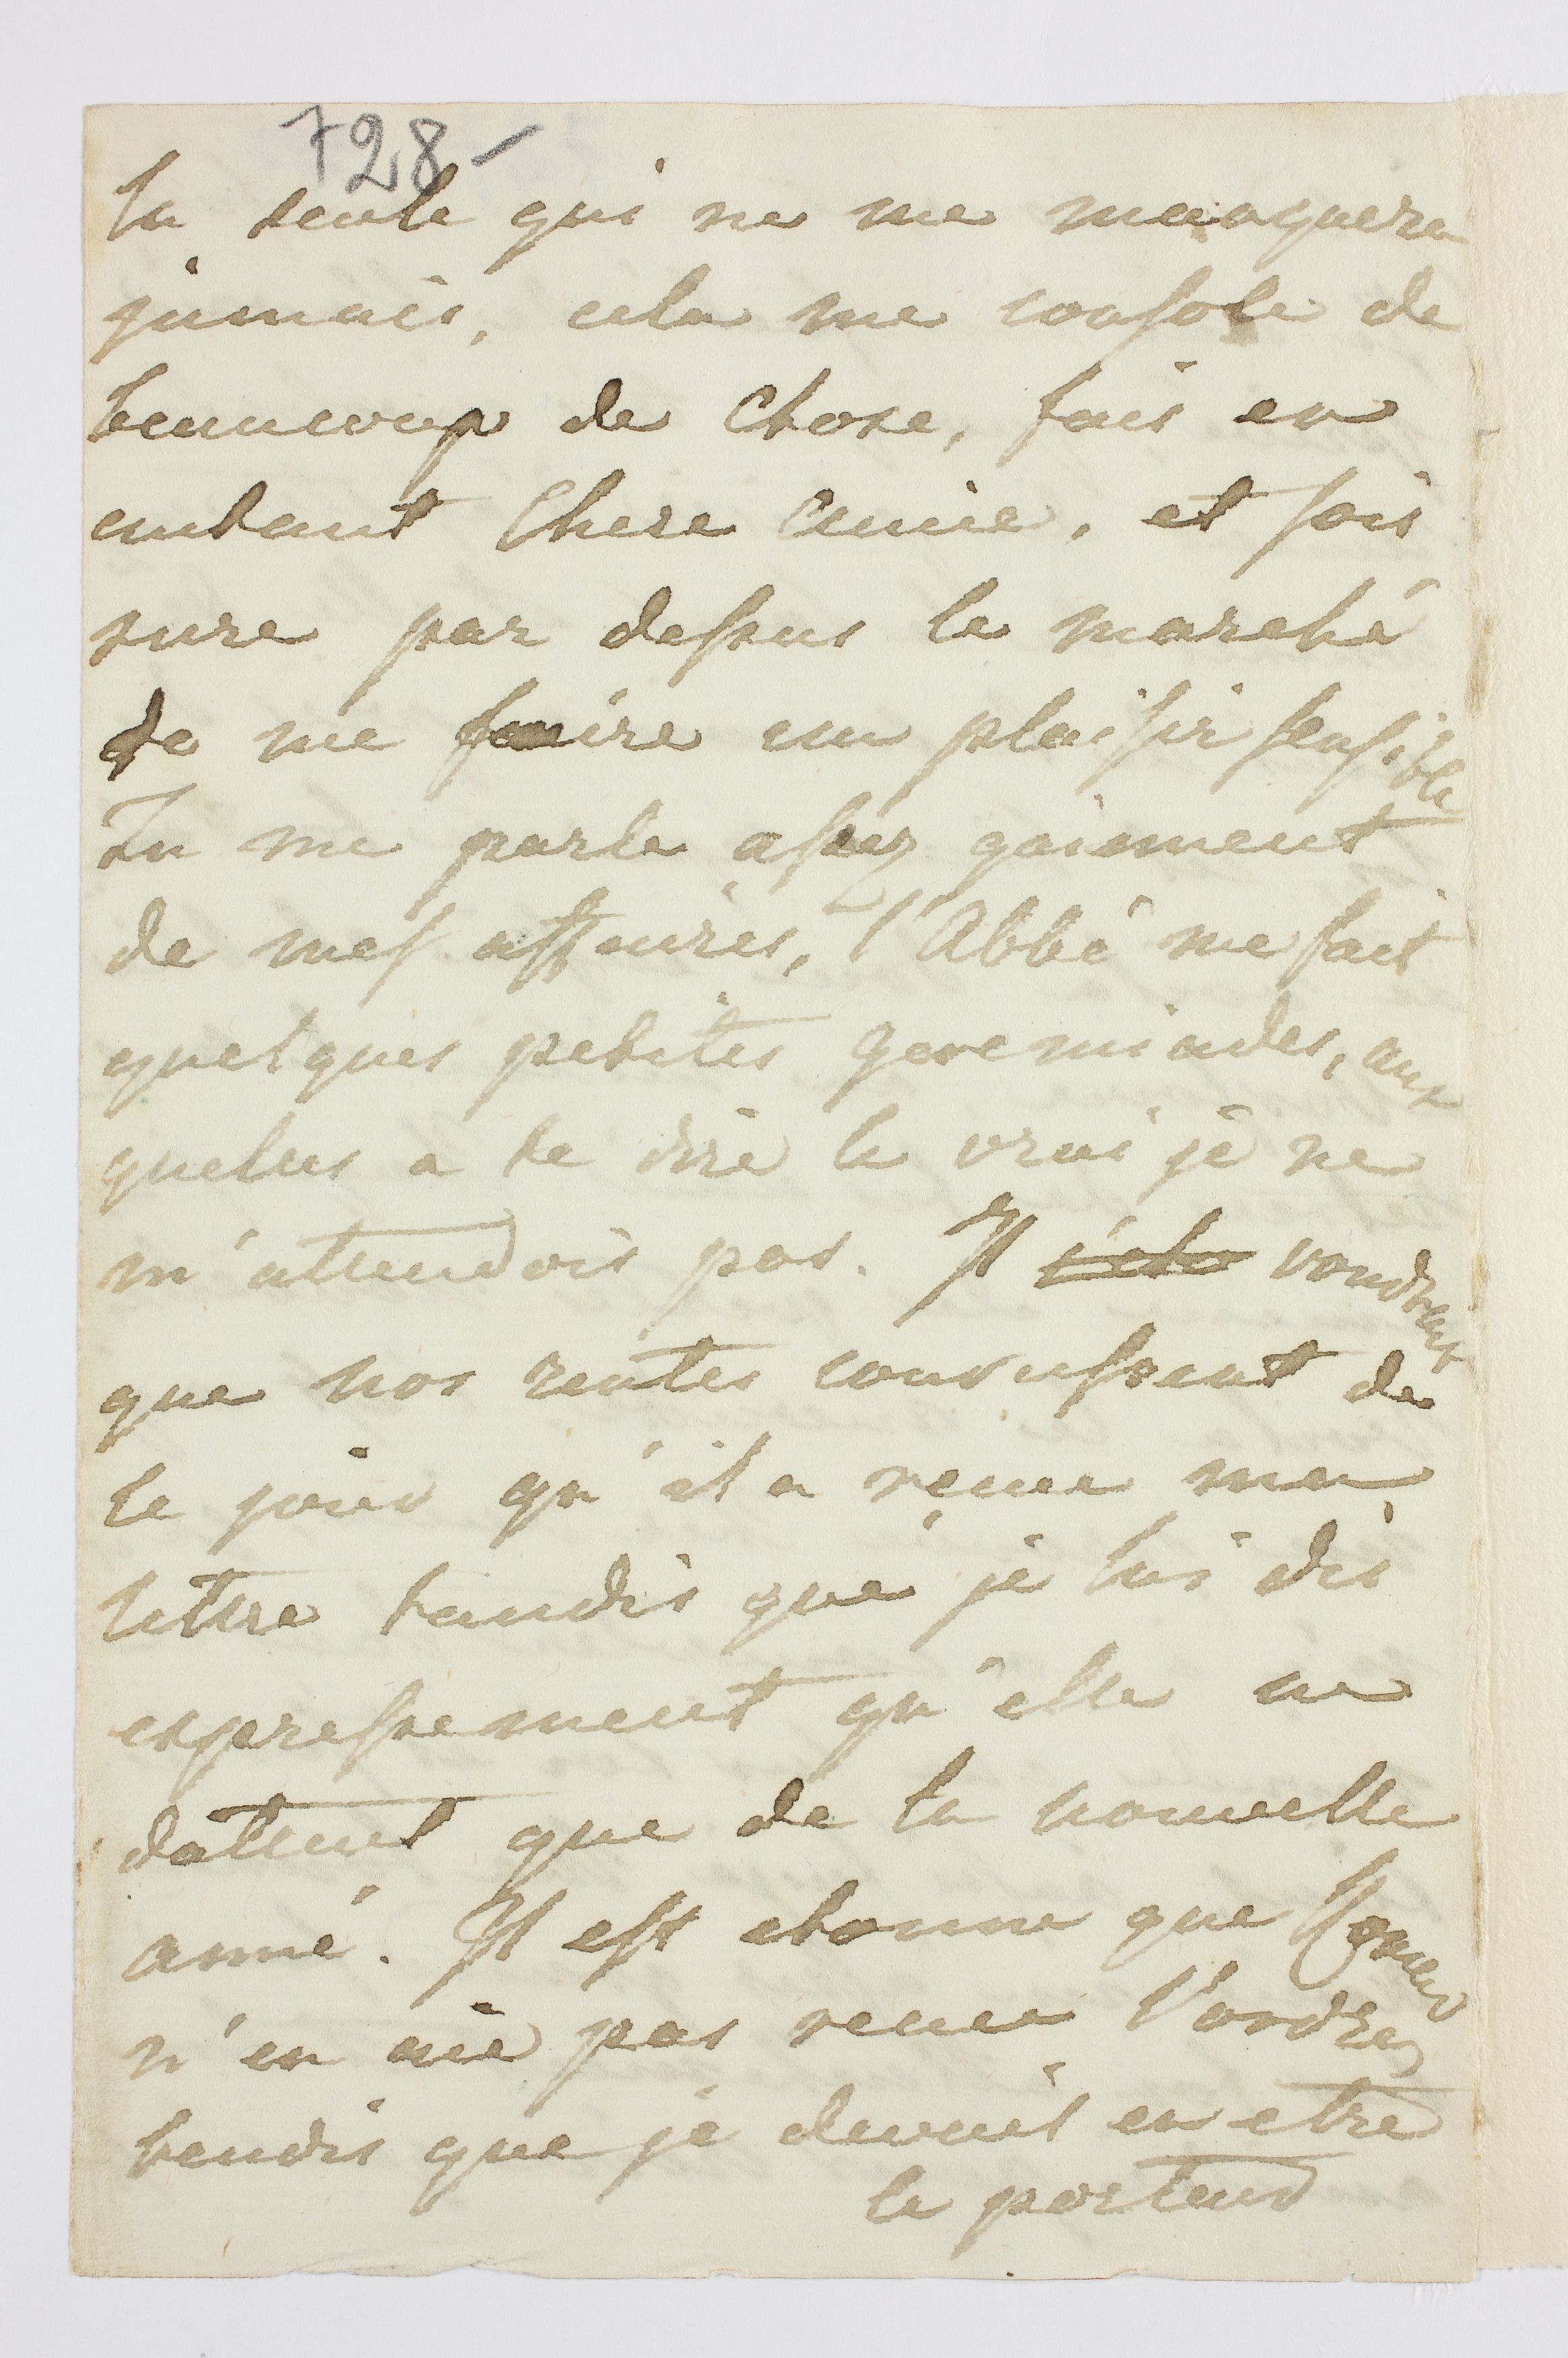 728-
la seule qui ne me manquera
jamais, cela me console de
beaucoup de Chose, fais en
autant Chere Amie, et sois
sure par dessus le marché
de me faire un plaisir sensible
Tu me parle assez gaiement
de mes affaires, l'Abbé me fait
quelques petites geremiades, aux
quelles a te dire le vrai je ne
m'attendois pas. Il voudrait
que nos rentes courussent de
le jour qu'il a recue ma
lettre tandis que je lui dis
expressement qu'elle ne
dattent que de la nouvelle
anné. Il est etonne que
n'en aie pas recue l'ordre
tandis que je devait en etre
le porteur